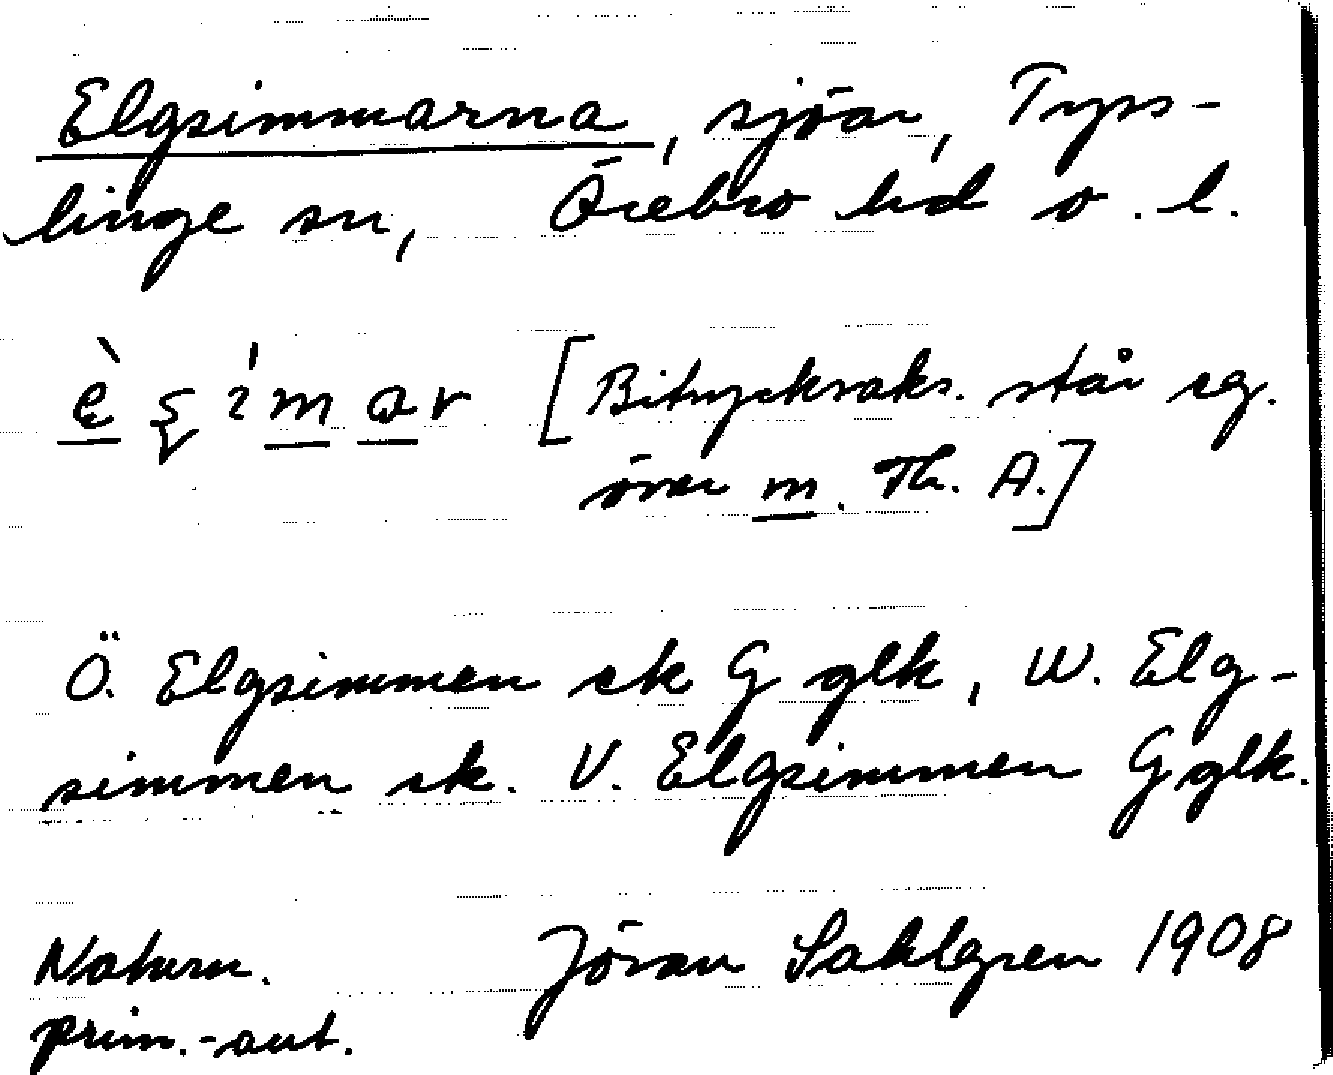 Elgsimmarna, sjöar, Tyss-
linge sn, Örebro hd o. l.
[Bitryckraks. står eg.
över m. Th. A.]
Ö. Elgsimmen ek G glk, W. Elg-
simmen ek. V. Elgsimmen G glk.
Naturn. Jöran Sahlgren 1908
prim.-aut.